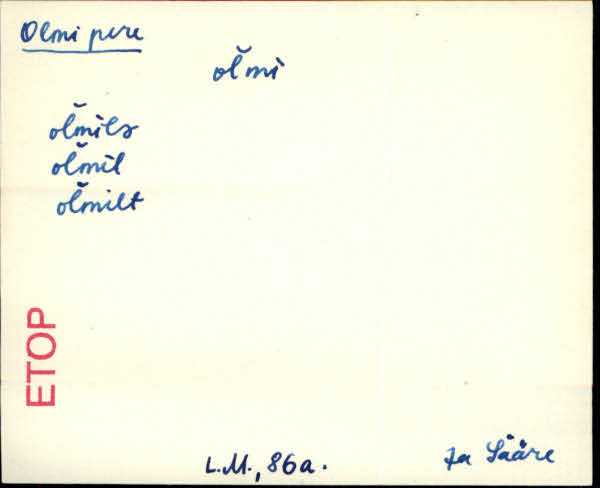 Olmi pere
ol̆mi
ol̆mile
ol̆mil
ol̆milt
ETOP
L.M., 86a.
Ja Sääre